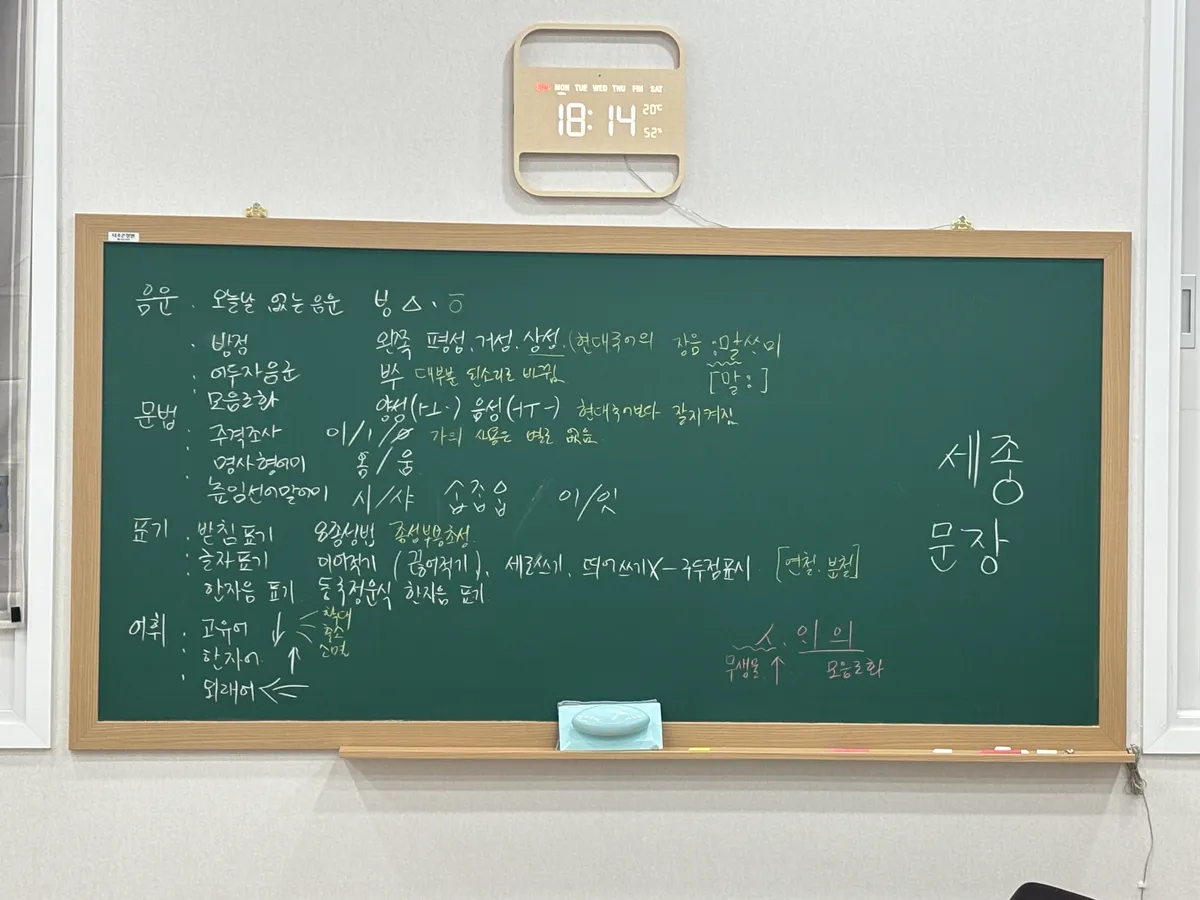 MON TUE WED THU FRI SAT
18:14 20℃
52%
음운 · 오늘날 없는 음운 ㅸ ㅿ ㆍ ㆆ
· 방점 왼쪽 평성, 거성, 상성, (현대국어의 장음 :말ᄊᆞ미
· 어두자음군 ㅄ 대부분 된소리로 바뀜 [말ː]
· 모음조화 양성(ㅏㅗㆍ) 음성(ㅓㅜㅡ) 현대국어보다 잘지켜짐
문법 · 주격조사 이/ㅣ/∅ 가의 사용은 별로 없음
· 명사형어미 옴/움
· 높임선어말어미 시/샤 ᄉᆞᆸ ᄌᆞᆸ ᄋᆞᆸ 이/잇
표기 · 받침표기 8종성법 종성부용초성
· 글자표기 이어적기 (끊어적기), 세로쓰기, 띄어쓰기X - 구두점표시 [연철, 분철]
한자음 표기 동국정운식 한자음 표기
어휘 · 고유어 ↓ 확대
축소
· 한자어 ↑
· 외래어
세종
문장
ㅅ. 인 의
무생물 ↑ 모음조화